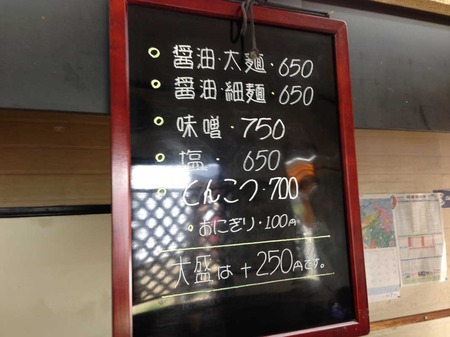 ○ 醤油・太麺・650
○ 醤油・細麺・650
○ 味噌・750
○ 塩・ 650
○ とんこつ・700
○ おにぎり・100円
大盛は+250円です。